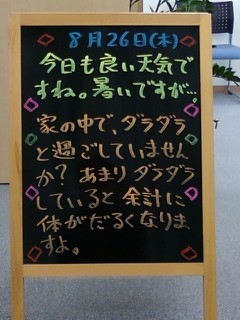 8月26日(木)
今日も良い天気で
すね。暑いですが…。
家の中で、ダラダラ
と過ごしていません
か？ あまり ダラダラ
していると 余計に
体がだるくなりま
すよ。